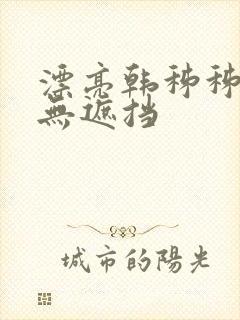 漂亮韩秭秭
無遮挡
城市的陽光